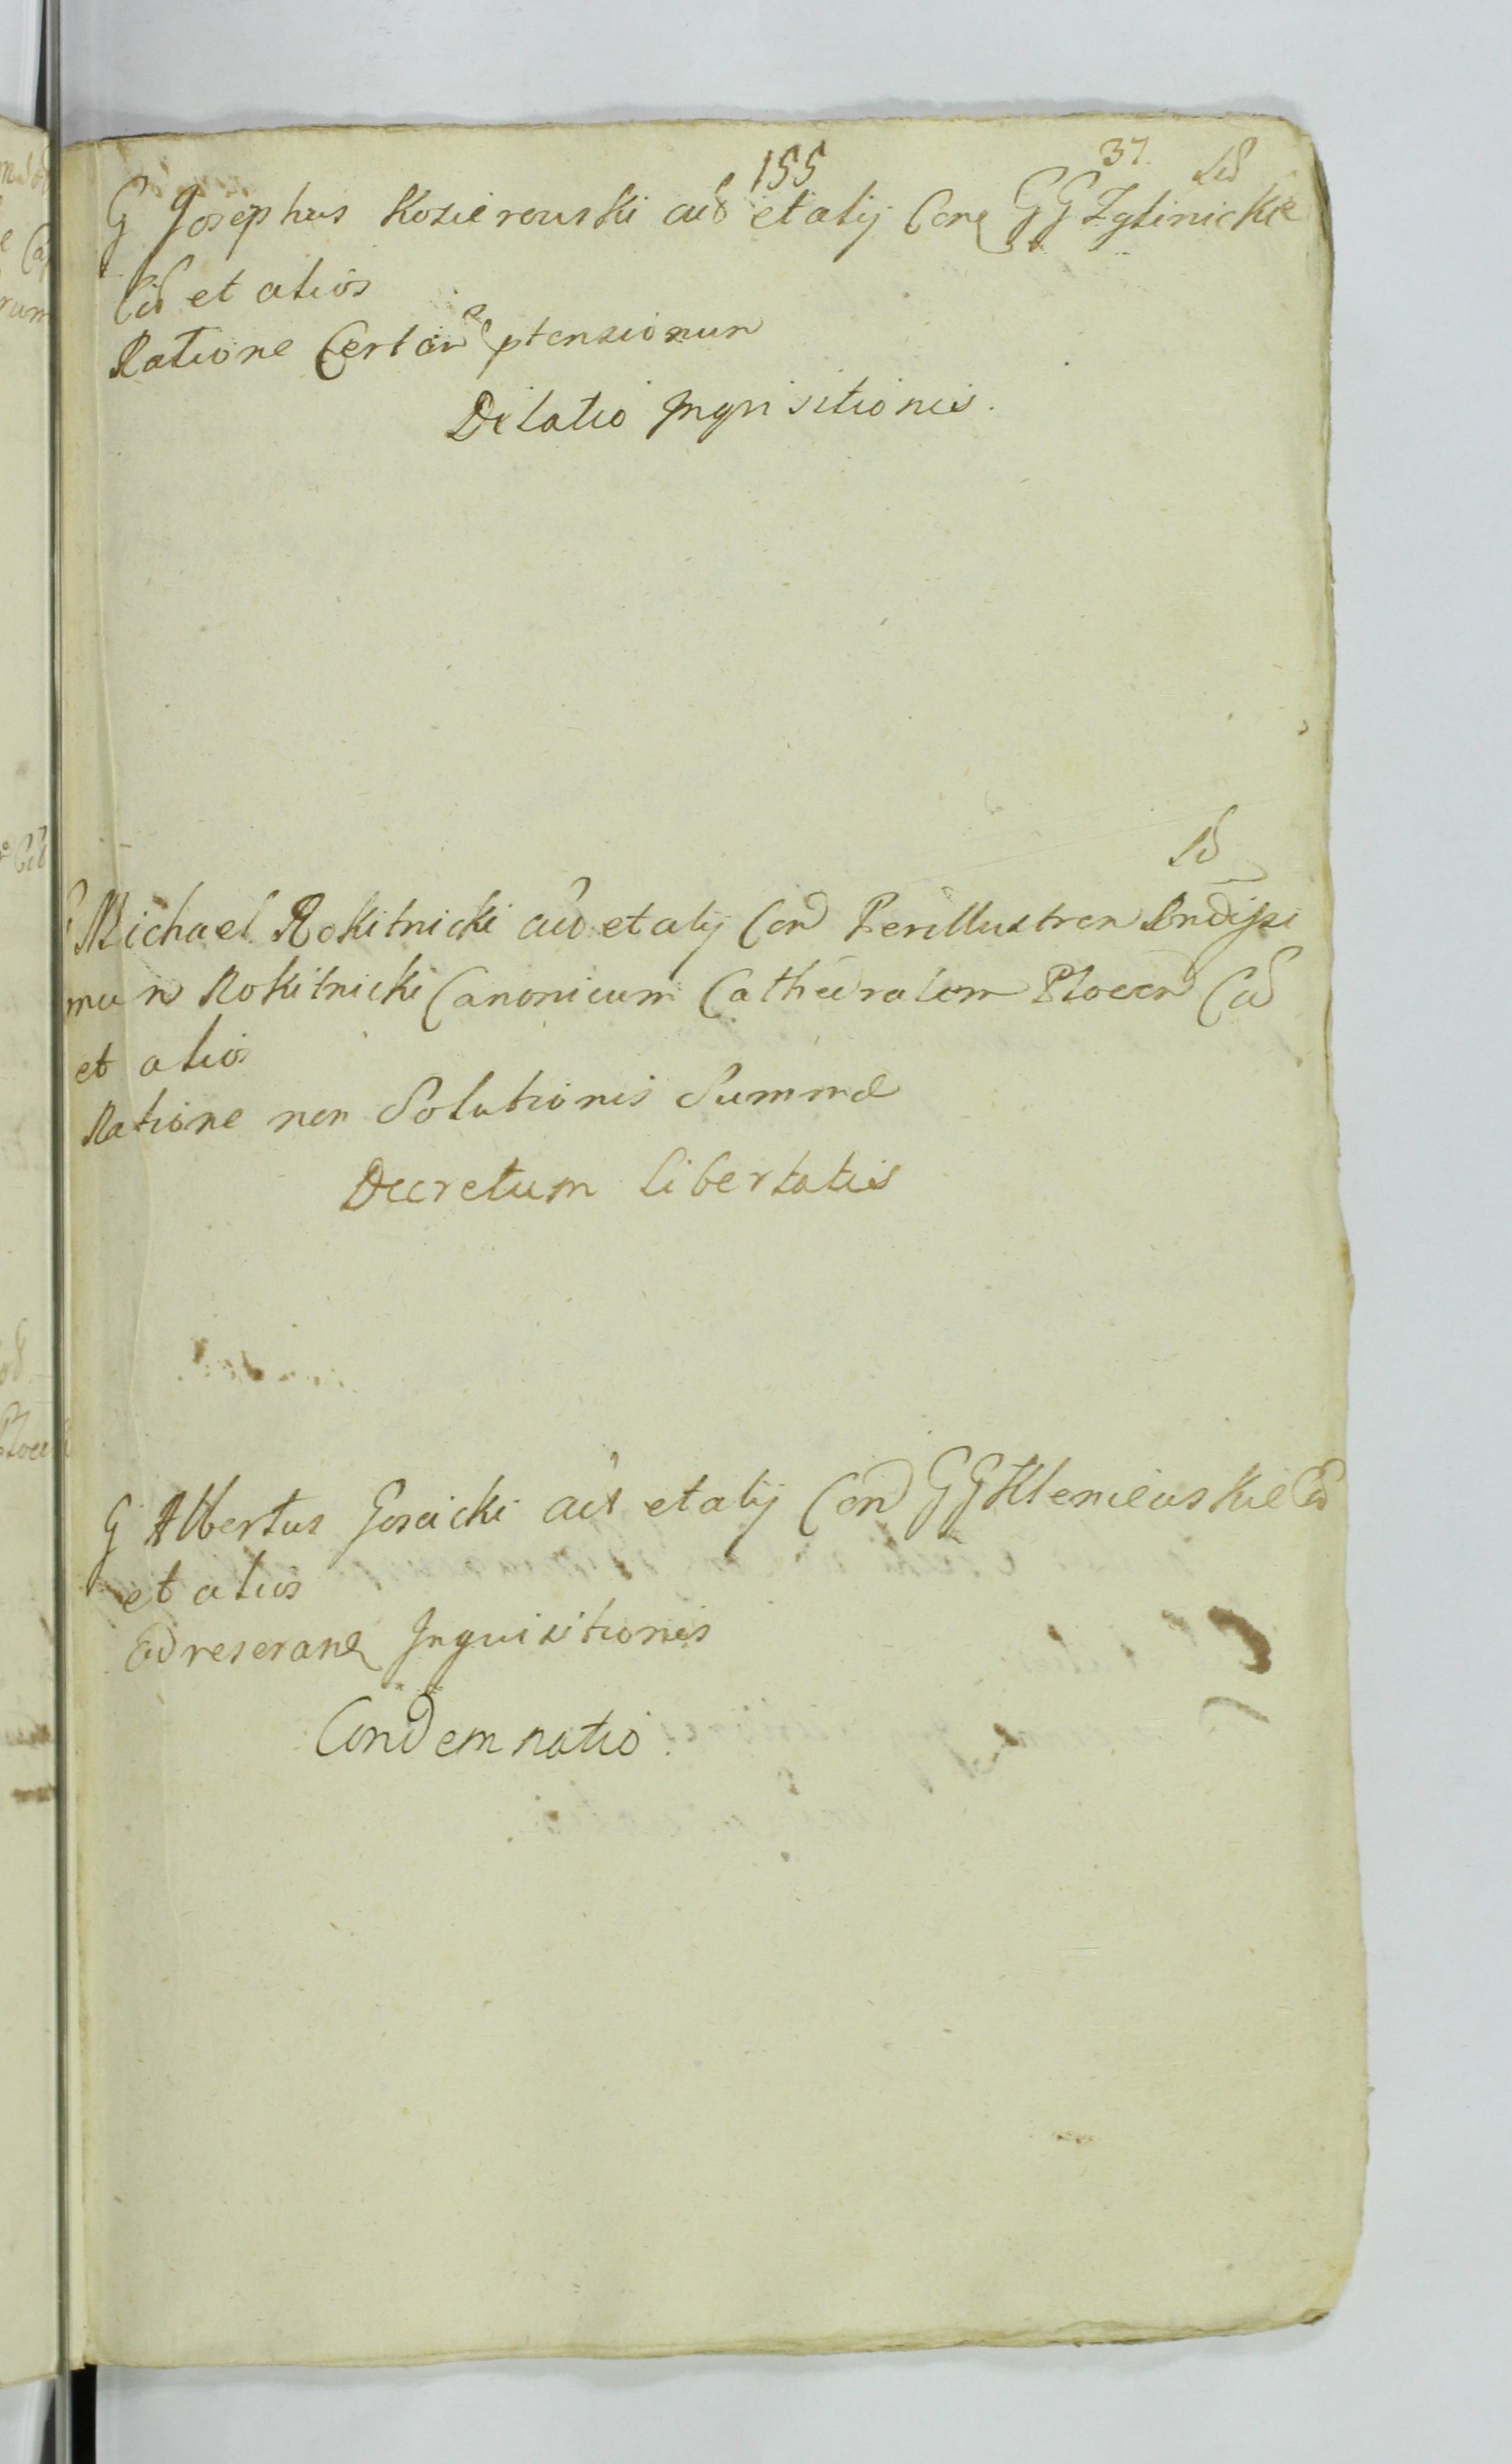 155
37.
G Josephus Kozierowski act et alij Con GG Zglinickie
Cit et alios
Ratione Certar ptensionum
Dilatio Inqnisitionis.
G Michael Rokitnicki act et alij Con Perillustrem Rndissi
mum Rokitnicki Canonicum Cathedralem Plocen Cit
et alios
Ratione non Solutionis Summæ
Decretum libertatis
G Albertus Goscicki act et alij Con GG Kleniewskie Cit
et alios
Ad reseran Inquisitionis
Condemnatio.